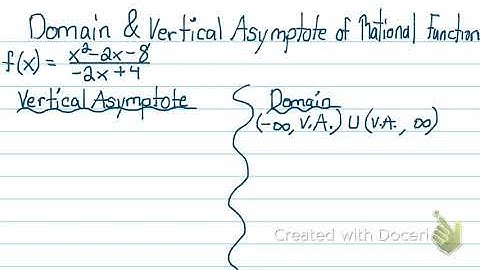 Domain & Vertical Asymptote of Rational Function
f(x) = x²-2x-8 / -2x+4
Vertical Asymptote
Domain
(-∞, V.A.) ∪ (V.A., ∞)
Created with Doceri